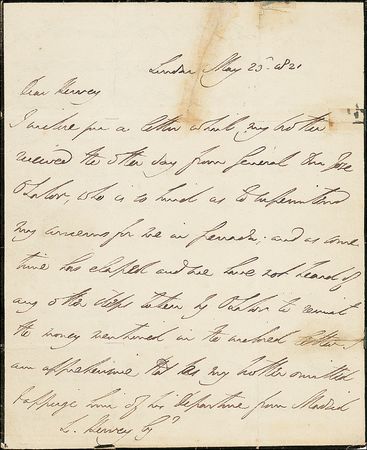 London May 25 1821
Dear Hervey
I enclose you a letter which my brother
received the other day from General Don Jose
O'Lalor, who is so kind as to superintend
my concerns for me in Grenada; and as some
time has elapsed and we have not heard of
any other steps taken by O'Lalor to remit
the money mentioned in the enclosed letter I
am apprehensive that as my brother omitted
to apprize him of his departure from Madrid
L. Hervey Esqr